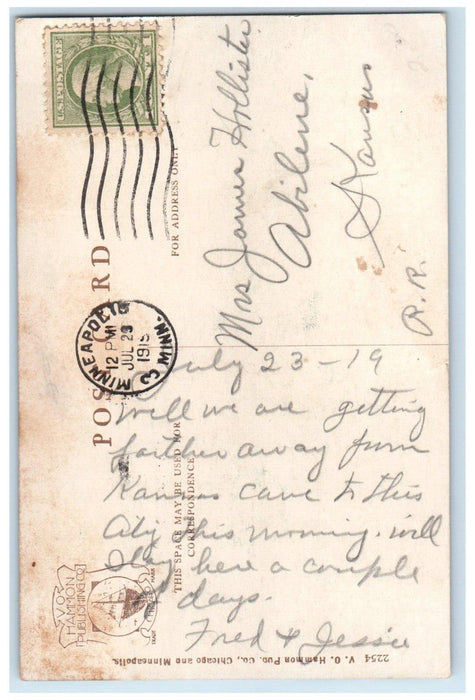 U.S. POSTAGE
MINNEAPOLIS MINN. 3
12 PM
JUL 23
1919
POST CARD
FOR ADDRESS ONLY
Mrs James Hollister
Abilene,
Kansas
R.R.
THIS SPACE MAY BE USED FOR
CORRESPONDENCE
July 23-19
Well we are getting
farther away from
Kansas came to this
City this morning. will
stay here a couple
of days.
Fred & Jessie
V.O.
HAMMON
PUBLISHING CO.
TRADE MARK
2254 V. O. Hammon Pub. Co., Chicago and Minneapolis.